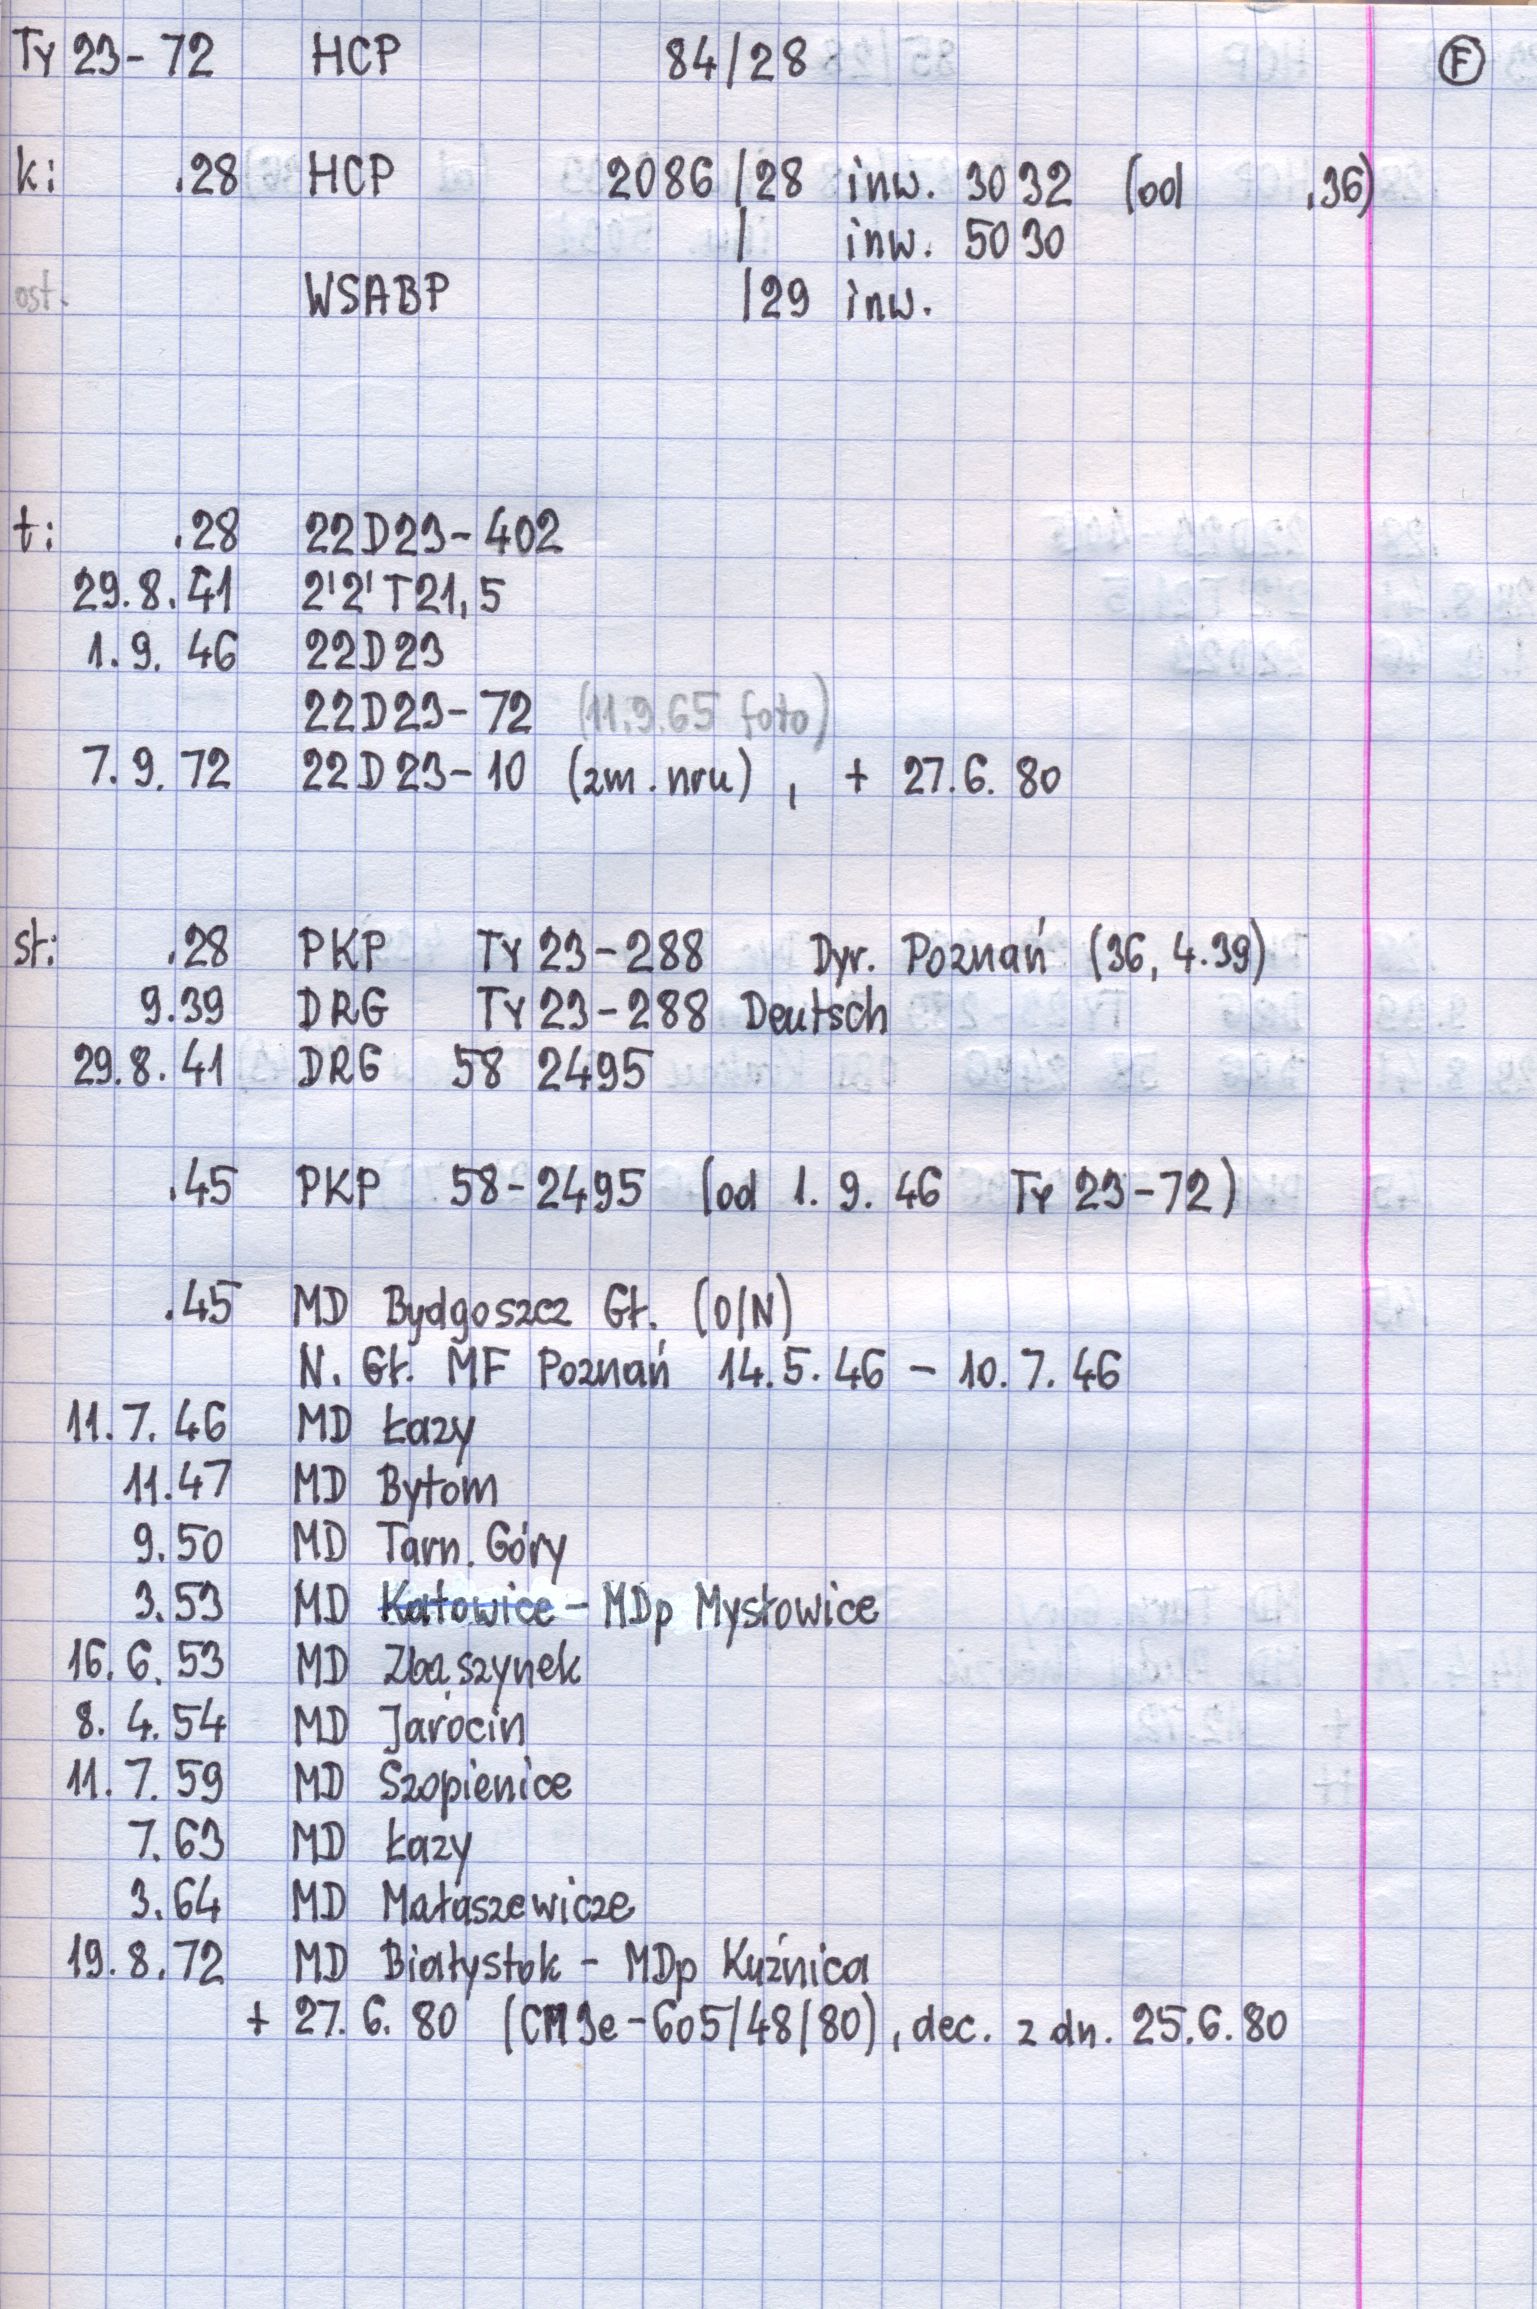 Ty 23-72 HCP 84/28 F
k: .28 HCP 2086/28 inw. 3032 (od .36)
/ inw. 5030
ost. WSABP /29 inw.
t: .28 22D23-402
29.8.41 2'2'T21,5
1.9.46 22D23
22D23-72 (11.9.65 foto)
7.9.72 22D23-10 (zm.nru), + 27.6.80
st: .28 PKP Ty 23-288 Dyr. Poznań (36, 4.39)
9.39 DRG Ty 23-288 Deutsch
29.8.41 DRG 58 2495
.45 PKP 58-2495 (od 1.9.46 Ty 23-72)
.45 MD Bydgoszcz Gł. (O/N)
N. Gł. MF Poznań 14.5.46 - 10.7.46
11.7.46 MD Łazy
11.47 MD Bytom
9.50 MD Tarn. Góry
3.53 MD Katowice - MDp Mysłowice
16.6.53 MD Zbąszynek
8.4.54 MD Jarocin
11.7.59 MD Szopienice
7.63 MD Łazy
3.64 MD Małaszewicze
19.8.72 MD Białystok - MDp Kuźnica
+ 27.6.80 (CM3e-605/48/80), dec. z dn. 25.6.80